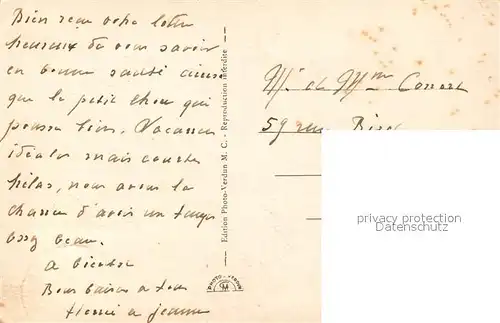 Bien reçu votre lettre
heureux de vous savoir
en bonne santé ainsi
que le petit chou qui
pousse bien. Vacances
idéales mais courtes
hélas, nous avons la
chance d'avoir un temps
assez beau.
a bientot
Bons baisers a tous
a Jeanne
Edition Photo-Verdun M. C. - Reproduction interdite -
PHOTO - VERDUN
Mr et Mme
59 rue
privacy protection